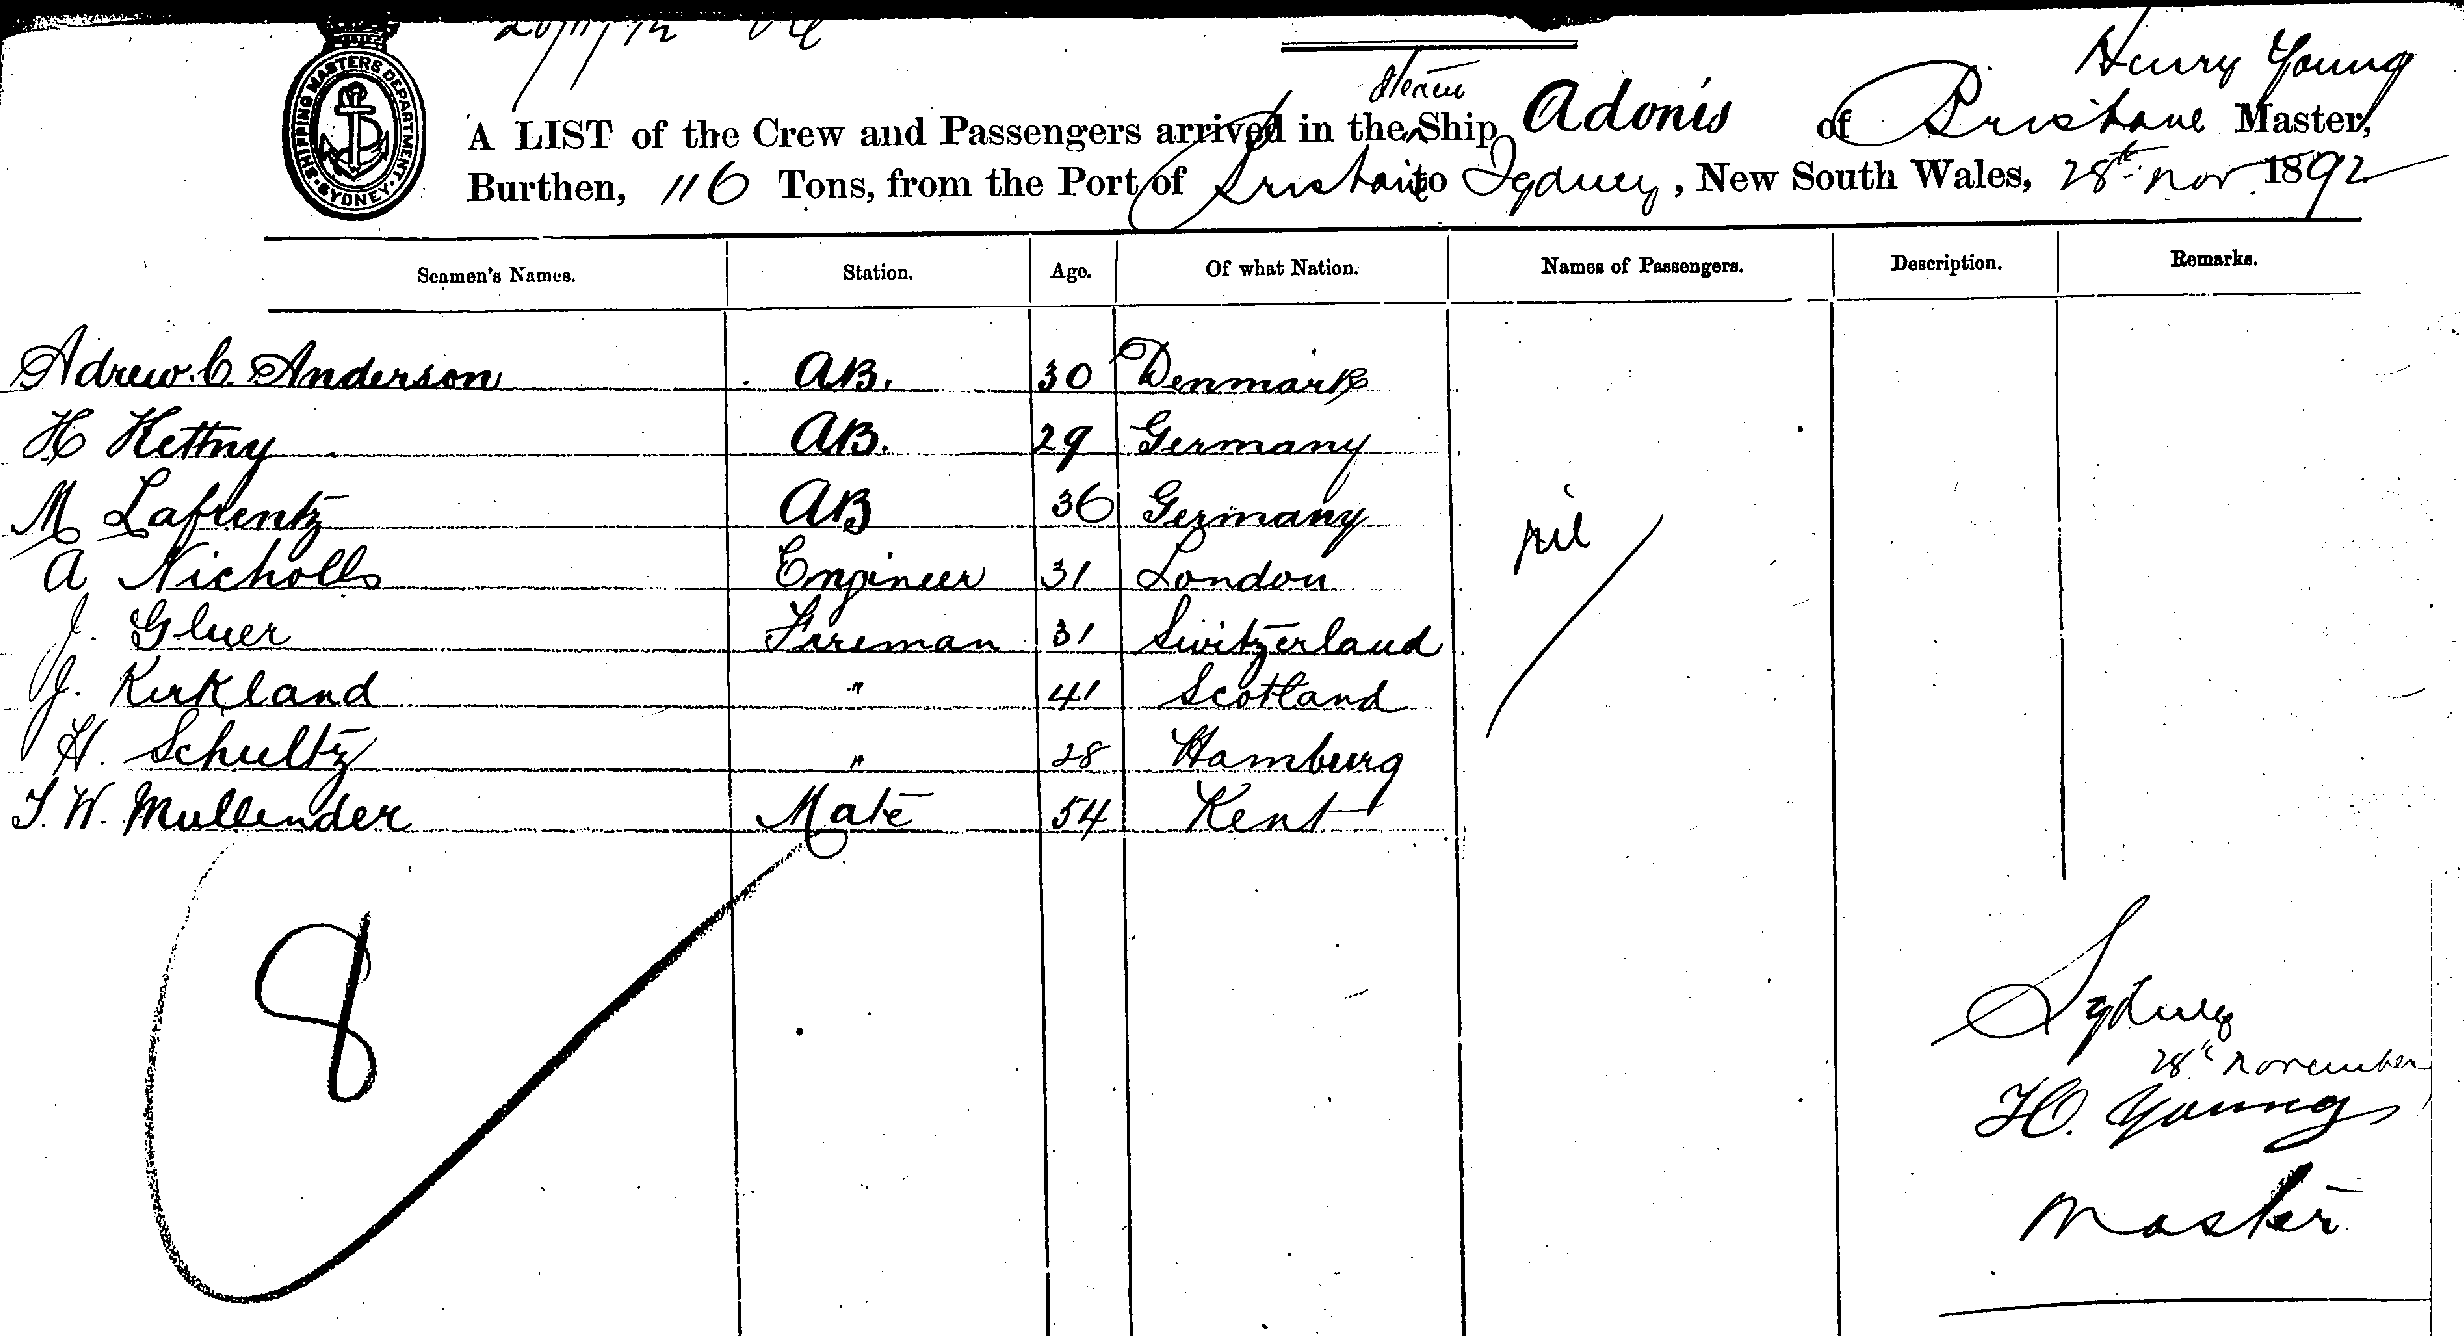 SHIPPING MASTERS DEPARTMENT. SYDNEY.
Henry Young
steam
A LIST of the Crew and Passengers arrived in the Ship Adonis of Brisbane Master,
Burthen, 116 Tons, from the Port of Brisbane to Sydney, New South Wales, 28th Nov 1892
Seamen's Names. Station. Age. Of what Nation. Names of Passengers. Description. Remarks.
Adrew. C. Anderson AB. 30 Denmark
H Kettny AB. 29 Germany
M Lafrentz AB 36 Germany
nil
A Nicholls Engineer 31 London
J. Gluer Fireman 31 Switzerland
J. Kirkland " 41 Scotland
H. Schultz " 28 Hamburg
T. W. Mullender Mate 54 Kent
8
Sydney
28th November
H. Young
Master